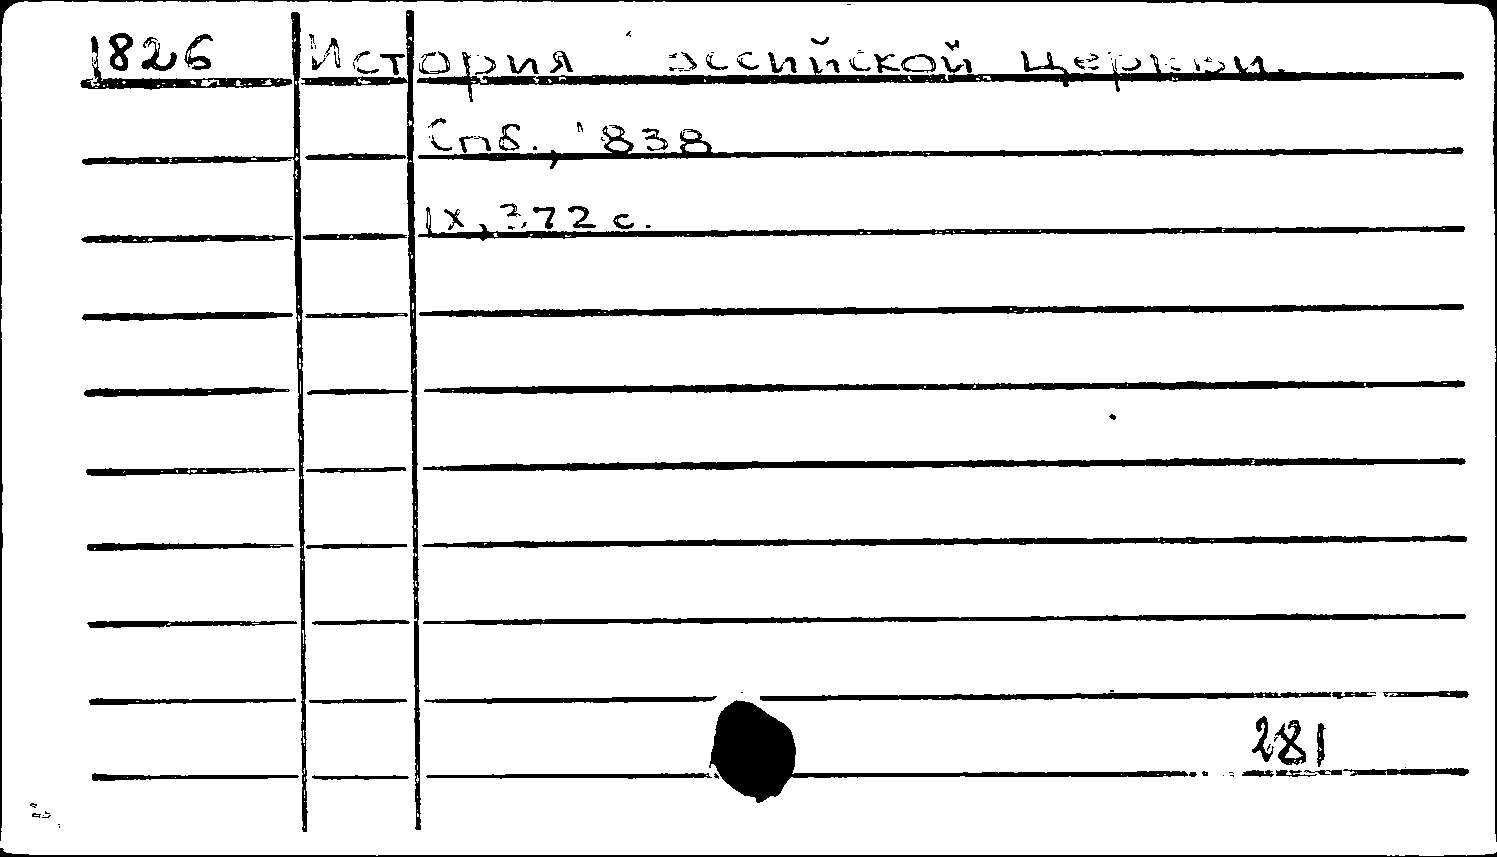 1826 История Российской церкви.
Спб., 1838
IX, 372 с.
281